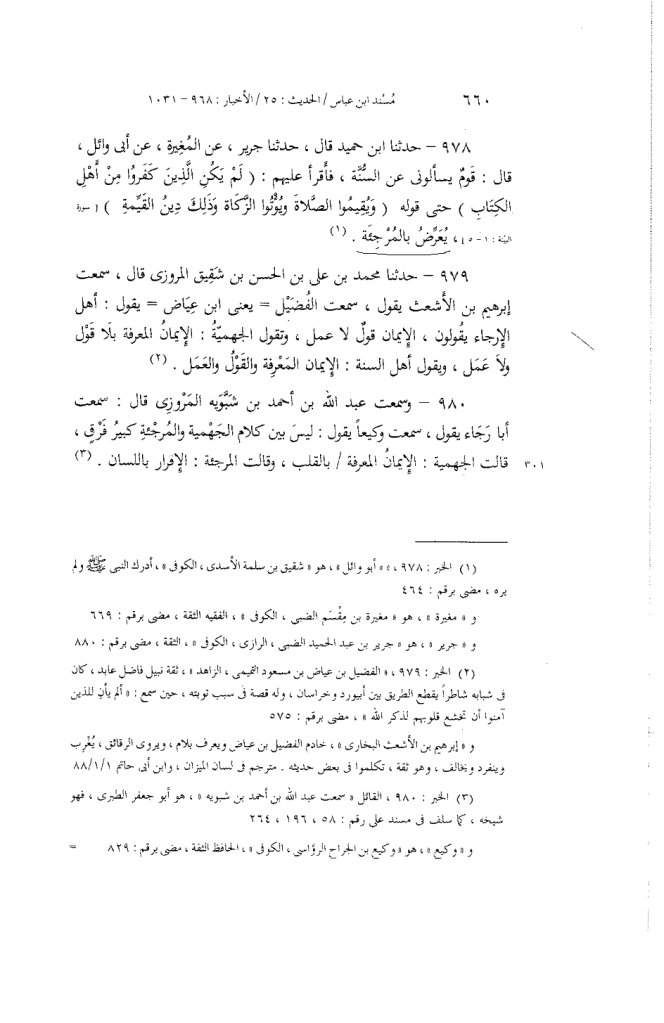 ٦٦٠ مُسْند ابن عباس / الحديث : ٢٥ / الأخبار : ٩٦٨ - ١٠٣١
٩٧٨ - حدثنا ابن حميد قال ، حدثنا جرير ، عن المُغِيرة ، عن أبى وائل ،
قال : قَومٌ يسألونى عن السُّنَّة ، فأَقرأ عليهم : ( لَمْ يَكُنِ الَّذِينَ كَفَرُوا مِنْ أَهْلِ
الكِتَابِ ) حتى قوله ( وَيُقِيمُوا الصَّلاةَ وَيُؤْتُوا الزَّكَاةَ وَذَلِكَ دِينُ القَيِّمةِ ) [ سورة
البيّنة : ١ - ٥ ] ، يُعَرِّضُ بالمُرْجِئَة . (١)
٩٧٩ - حدثنا محمد بن على بن الحسن بن شَقِيق المروزى قال ، سمعت
إبرهيم بن الأَشعث يقول ، سمعت الفُضَيْل = يعنى ابن عِيَاض = يقول : أهل
الإِرجاء يقُولون ، الإِيمان قولٌ لا عمل ، وتقول الجهميّةُ : الإِيمانُ المعرفة بلَا قَوْل
ولاَ عَمَل ، ويقول أهل السنة : الإِيمان المَعْرِفة والقَوْلُ والعَمَل . (٢)
٩٨٠ - وسمعت عبد الله بن أحمد بن شَبُّوَيه المَرْوزِى قال : سمعت
أبا رَجَاء يقول ، سمعت وكيعاً يقول : ليسَ بين كلام الجَهْمية والمُرْجئةِ كبيرُ فَرْقٍ ،
قالت الجهمية : الإِيمانُ المعرفة / بالقلب ، وقالت المرجئة : الإِقرار باللسان . (٣) ٣٠١
(١) الخبر : ٩٧٨ ، « أبو وائل » ، هو « شقيق بن سلمة الأسدى ، الكوفى » ، أدرك النبى ﷺ ولم
يره ، مضى برقم : ٤٦٤
و « مغيرة » ، هو « مغيرة بن مِقْسَم الضبى ، الكوفى » ، الفقيه الثقة ، مضى برقم : ٦٦٩
و « جرير » ، هو « جرير بن عبد الحميد الضبى ، الرازى ، الكوفى » ، الثقة ، مضى برقم : ٨٨٠
(٢) الخبر : ٩٧٩ ، « الفضيل بن عياض بن مسعود التميمى ، الزاهد » ، ثقة نبيل فاضل عابد ، كان
فى شبابه شاطراً يقطع الطريق بين أبيورد وخراسان ، وله قصة فى سبب توبته ، حين سمع : « ألم يأنِ للذين
آمنوا أن تخشع قلوبهم لذكر الله » ، مضى برقم : ٥٧٥
و « إبرهيم بن الأشعث البخارى » ، خادم الفضيل بن عياض ويعرف بلام ، ويروى الرقائق ، يُغْرِب
وينفرد ويخالف ، وهو ثقة ، تكلموا فى بعض حديثه . مترجم فى لسان الميزان ، وابن أبى حاتم ٨٨/١/١
(٣) الخبر : ٩٨٠ ، القائل « سمعت عبد الله بن أحمد بن شبويه » ، هو أبو جعفر الطبرى ، فهو
شيخه ، كما سلف فى مسند على رقم : ٥٨ ، ١٩٦ ، ٢٦٤
و « وكيع » ، هو « وكيع بن الجراح الرؤاسى ، الكوفى » ، الحافظ الثقة ، مضى برقم : ٨٢٩ =